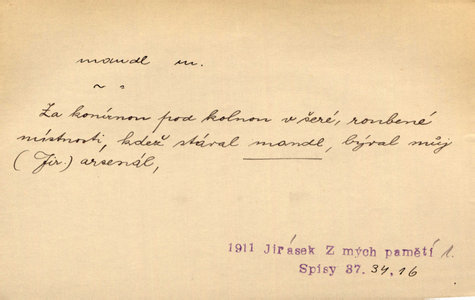 mandl m.
~ "
Za konírnou pod kolnou v šeré, roubené
místnosti, kdež stával mandl, býval můj
(Jir.) arsenál,
1911 Jirásek Z mých pamětí 1.
Spisy 37. 34, 16